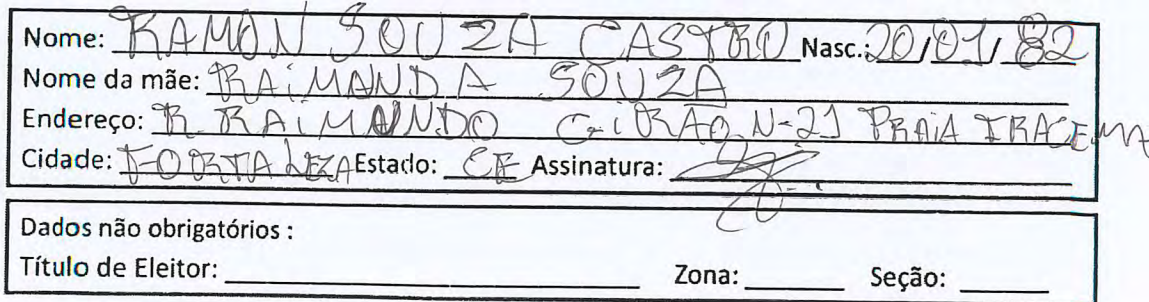 Nome: RAMON SOUZA CASTRO Nasc.: 20/01/82
Nome da mãe: RAIMANDA SOUZA
Endereço: R RAIMANDO GIRÃO N-21 PRAIA IRACEMA
Cidade: FORTALEZA Estado: CE Assinatura:
Dados não obrigatórios :
Título de Eleitor: Zona: Seção: